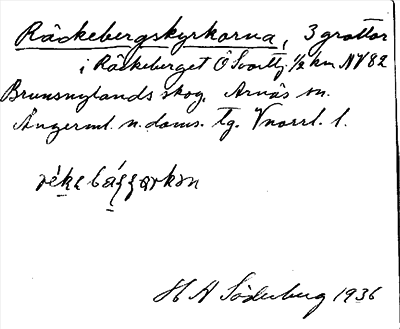 Räckebergskyrkorna, 3 grottor
i Räckeberget Ö Svarttj. 1/2 km NV 82
Brunsnylands skog, Arnäs sn.
Ångerml. n. doms. tg. Vnorrl. l.
H A Söderberg 1936